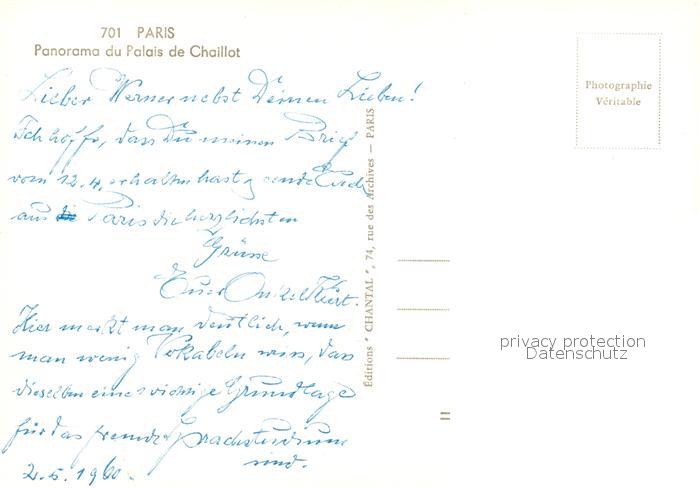 701 PARIS
Panorama du Palais de Chaillot
Photographie
Véritable
Lieber Werner nebst Deinen Lieben!
Ich hoffe, dass Du meinen Brief
vom 12.4. erhalten hast, sende Euch
aus Paris die herzlichsten
Grüsse
Euer Onkel Kurt.
Hier merkt man deutlich, wenn
man wenig Vokabeln weiss, das
dieselben eine wichtige Grundlage
für das fremde Sprachstudium
sind.
2.5.1960.
Éditions "CHANTAL", 74, rue des Archives — PARIS
privacy protection
Datenschutz